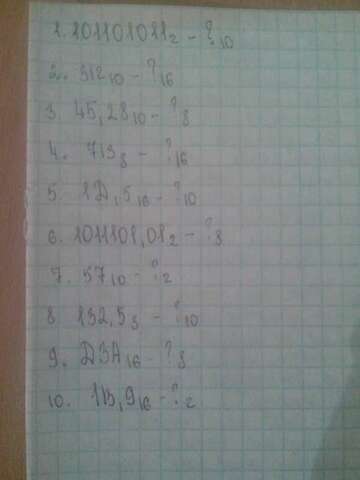 1. 101101011₂ - ?₁₀
2. 512₁₀ - ?₁₆
3. 45,28₁₀ - ?₈
4. 713₈ - ?₁₆
5. 1D,5₁₆ - ?₁₀
6. 1011101,01₂ - ?₈
7. 57₁₀ - ?₂
8. 132,5₈ - ?₁₀
9. D3A₁₆ - ?₈
10. 1B,9₁₆ - ?₂